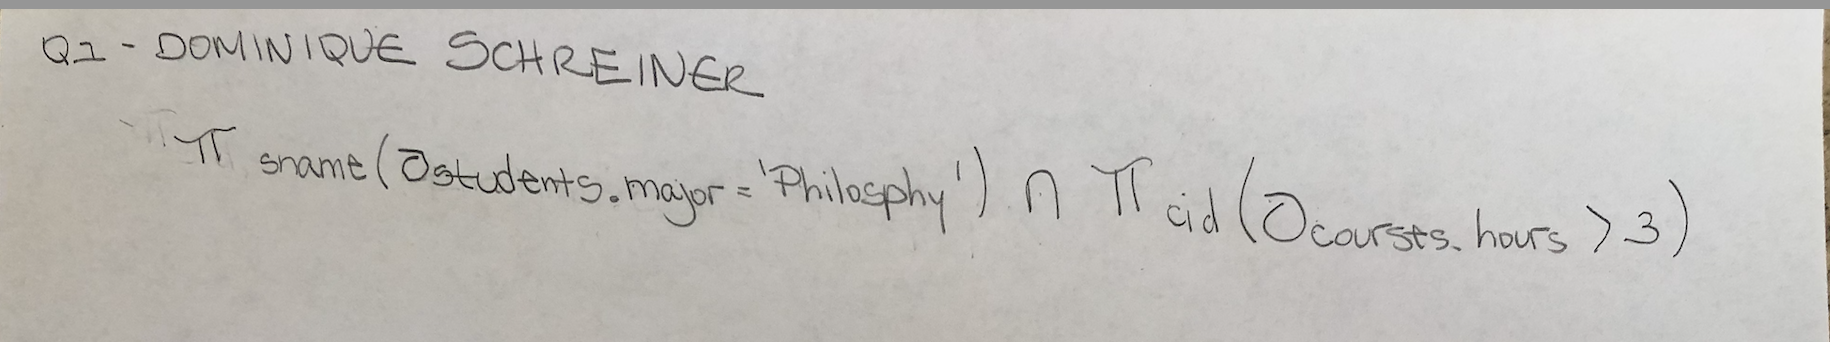 Q1 - DOMINIQUE SCHREINER
π sname (σstudents.major = 'Philosphy') ∩ π cid (σcoursts.hours > 3)